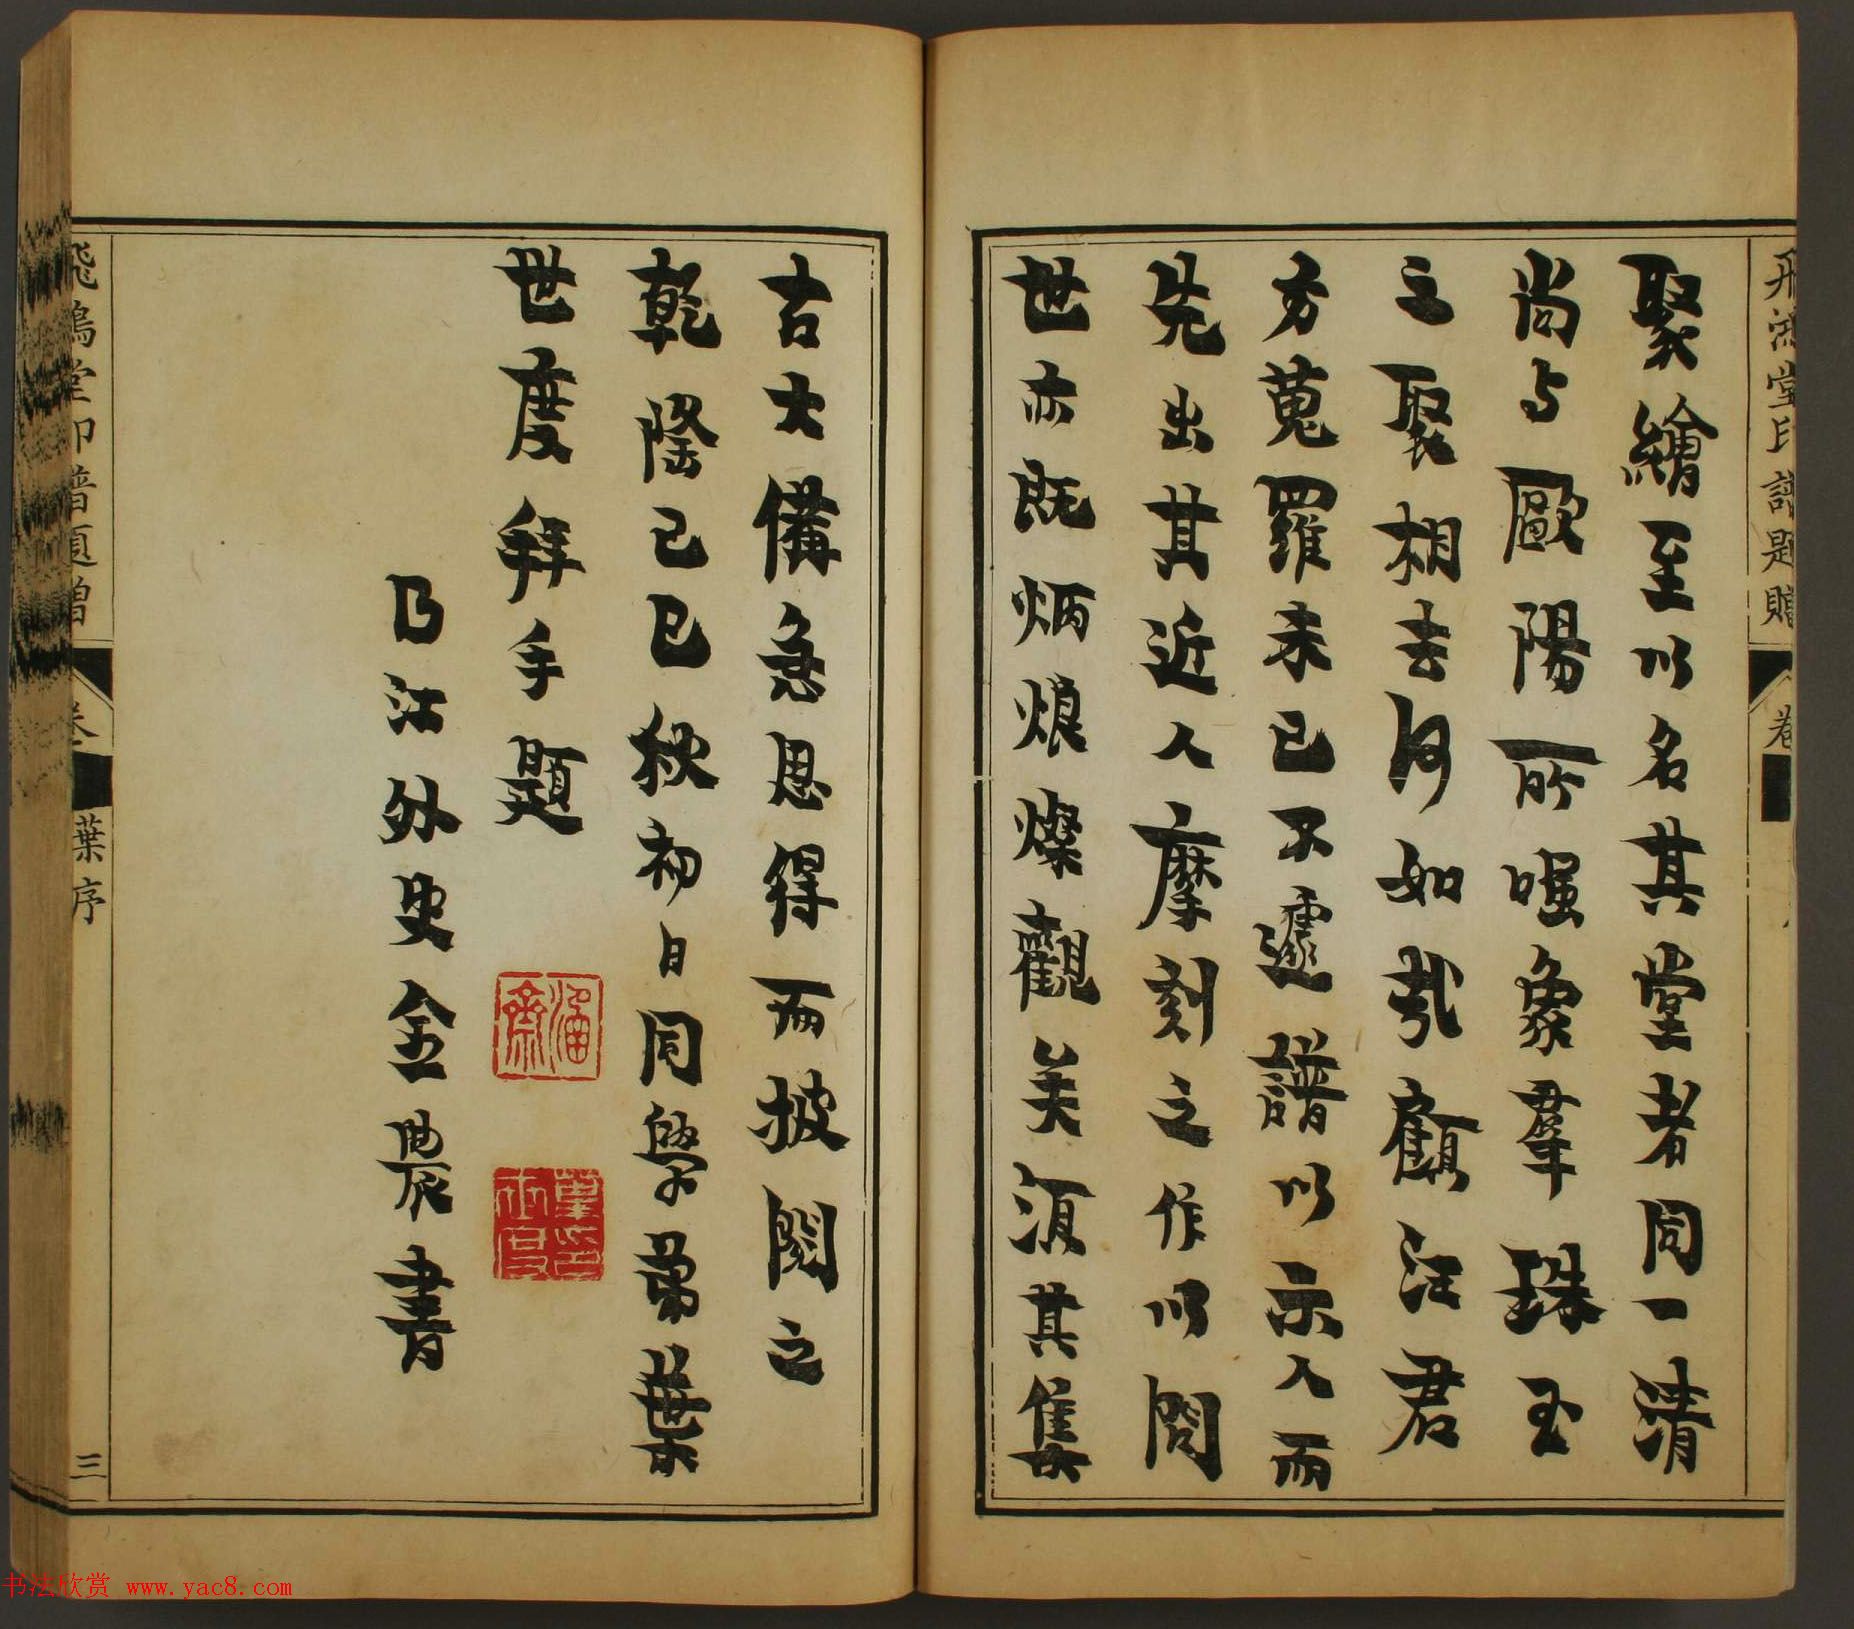 飛鴻堂印譜題贈
卷
聚繪至以名其堂者同一清
尚与歐陽所嗤象犀珠玉
之聚相去何如哉顧汪君
方蒐羅未已不遽譜以示人而
先出其近人摩刻之作以問
世亦既炳烺燦觀美須其集
古大備急思得而披閱之
乾隆己巳秋初日同學弟葉
世度拜手題
乃江外史金農書
飛鴻堂印譜題贈
卷
葉序
三
书法欣赏 www.yac8.com